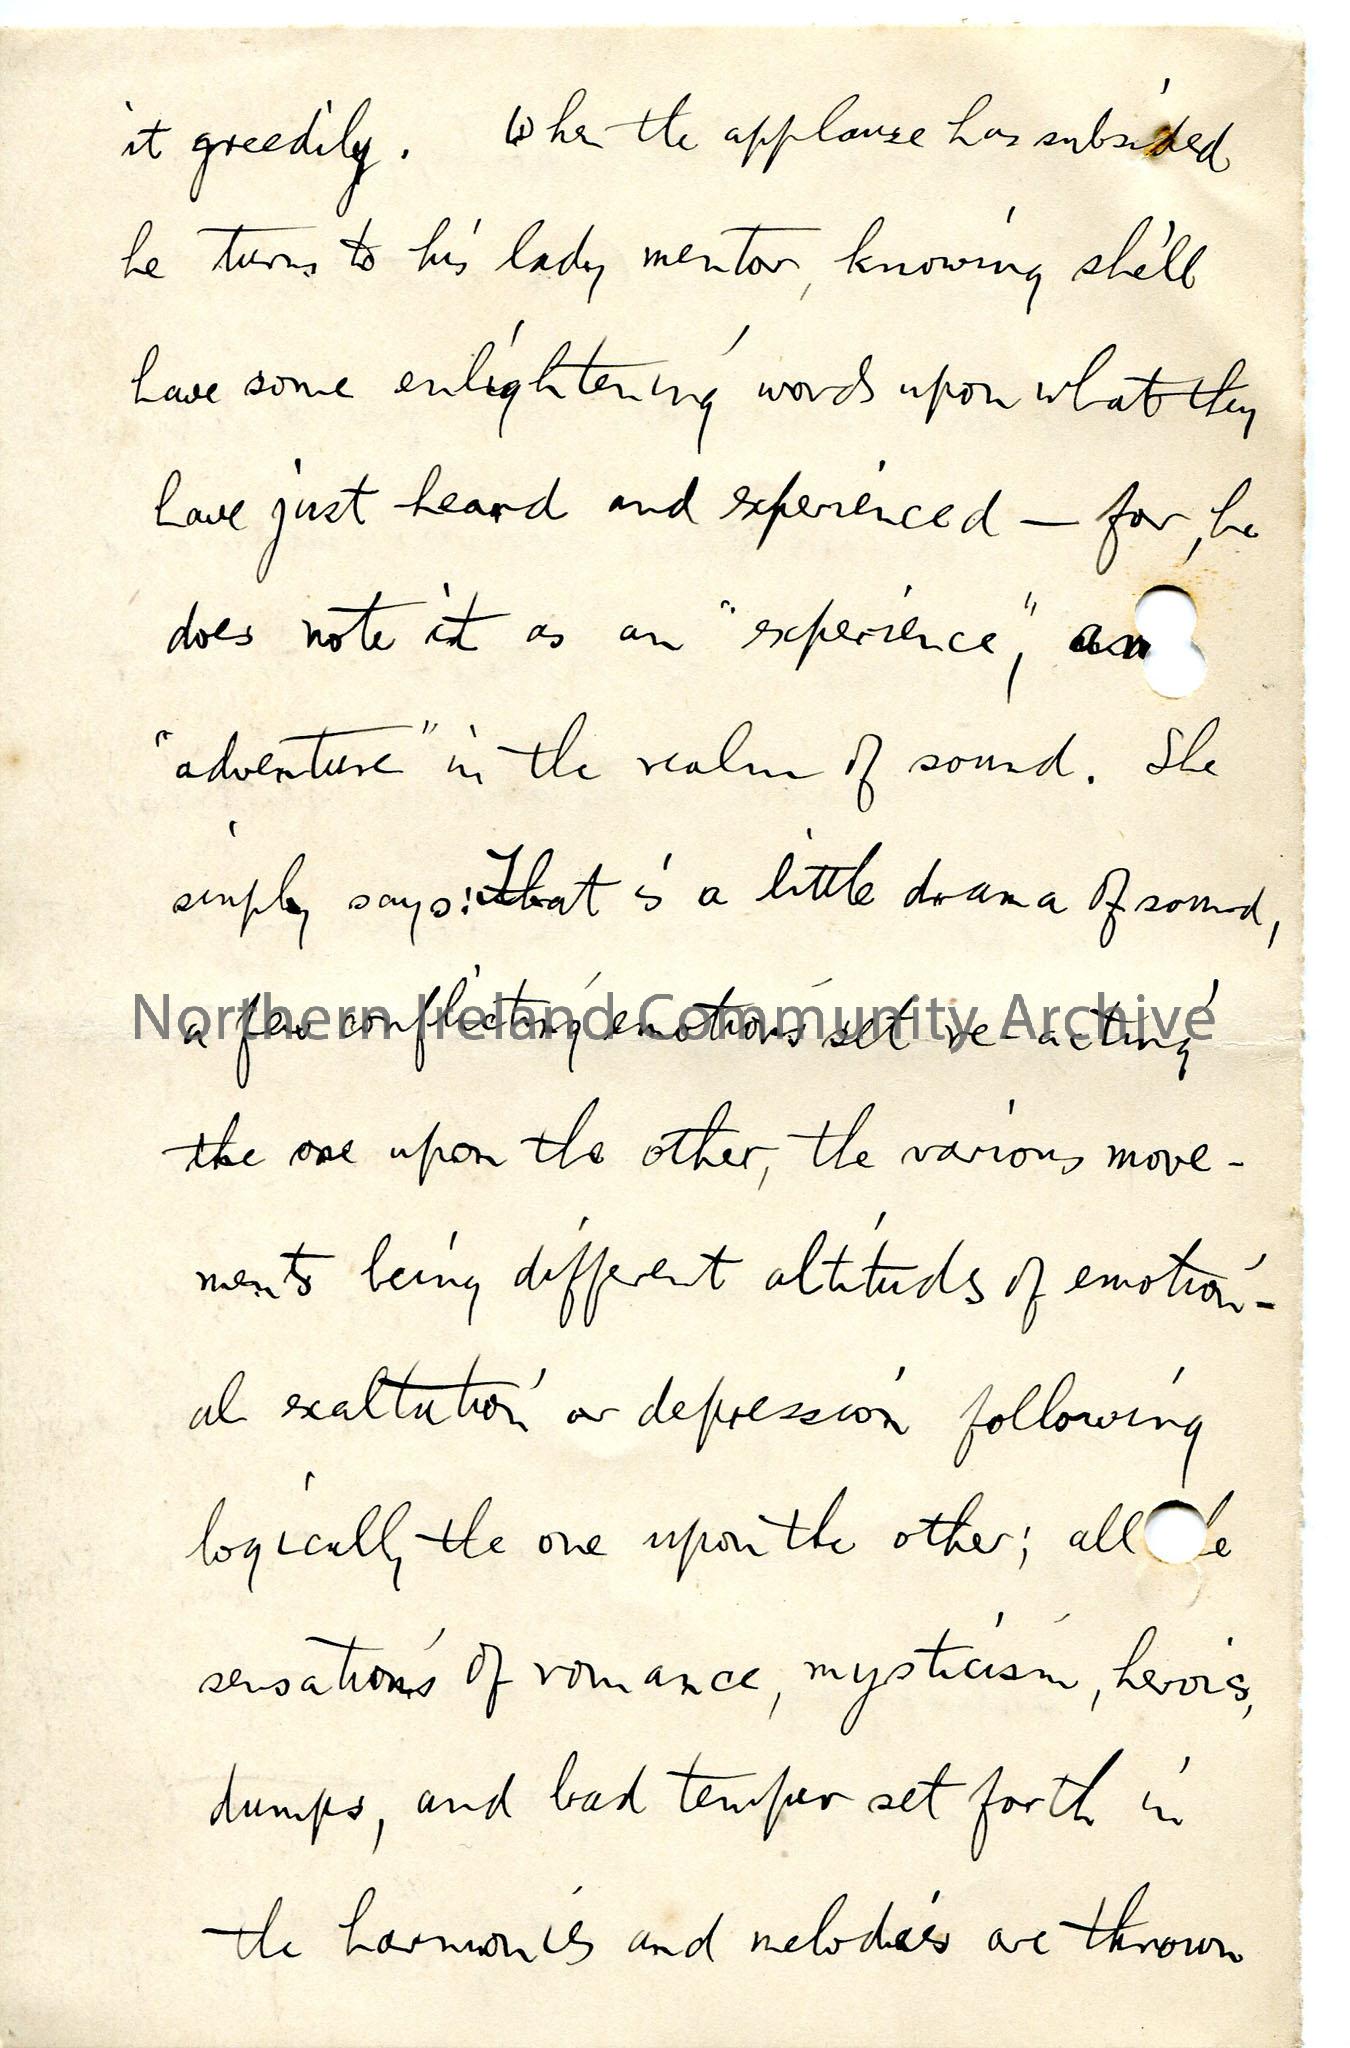 it greedily. When the applause has subsided
he turns to his lady mentor, knowing she'll
have some enlightening words upon what they
have just heard and experienced — for, he
does note it as an "experience," an
"adventure" in the realm of sound. She
simply says: That is a little drama of sound,
a few conflicting emotions set re-acting
the one upon the other, the various move-
ments being different altitudes of emotion-
al exaltation or depression following
logically the one upon the other; all
sensations of romance, mysticism,
dumps, and bad temper set forth in
the harmonies and melodies are thrown
Northern Ireland Community Archive